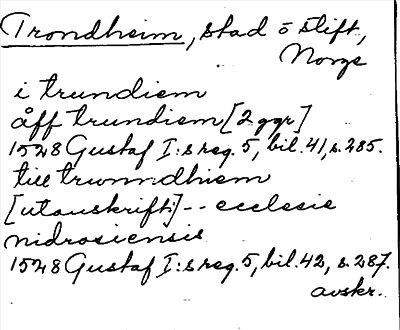 Trondheim, stad o stift,
Norge
i trundiem
åff trundiem [2 ggr]
1528 Gustaf I:s reg. 5, bil. 41, s. 285.
till trwnndhiem
[utanskrift:] -- ecclesie
nidrosiensis
1528 Gustaf I:s reg. 5, bil. 42, s. 287.
avskr.